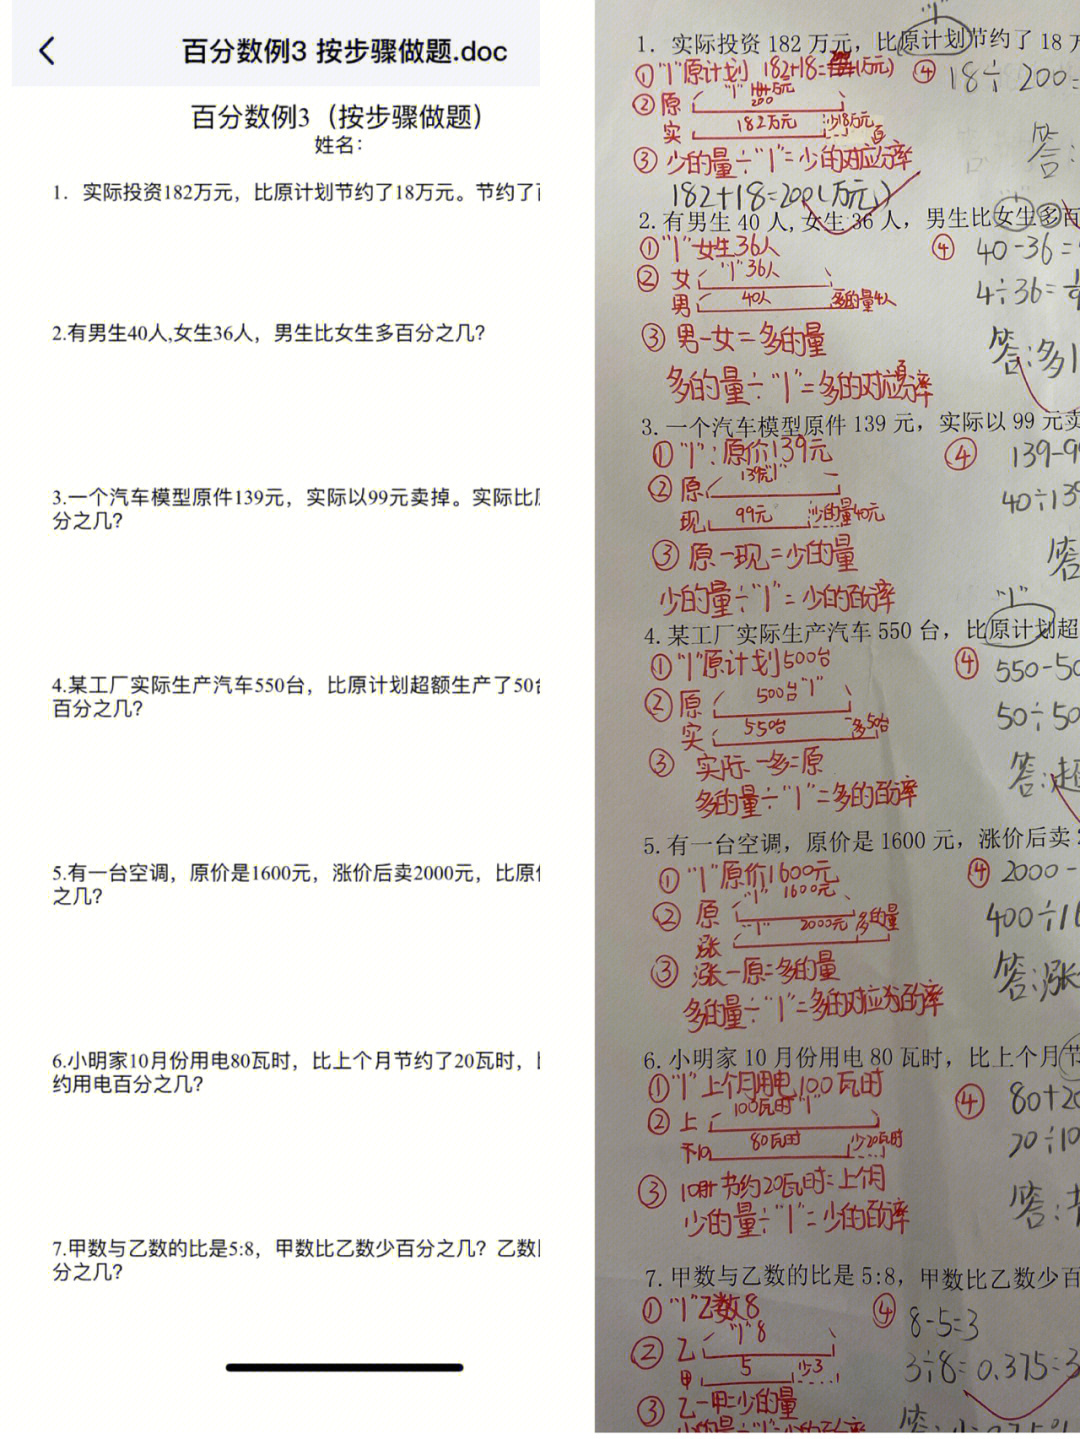 百分数例3 按步骤做题.doc
百分数例3（按步骤做题）
姓名：
1. 实际投资182万元，比原计划节约了18万元。节约了
2.有男生40人,女生36人，男生比女生多百分之几？
3.一个汽车模型原件139元，实际以99元卖掉。实际比
分之几？
4.某工厂实际生产汽车550台，比原计划超额生产了50
百分之几？
5.有一台空调，原价是1600元，涨价后卖2000元，比原
之几？
6.小明家10月份用电80瓦时，比上个月节约了20瓦时，
约用电百分之几？
7.甲数与乙数的比是5:8，甲数比乙数少百分之几？乙数
分之几？
"1"
1. 实际投资 182 万元，比原计划节约了 18
①"1"原计划 182+18= (万元) ④ 18÷200=
② 原 "1" 200
实 182万元 少18万元
③ 少的量÷"1"=少的对应百分率
答:
182+18=200(万元)
2.有男生 40 人,女生 36 人，男生比女生多百
①"1"女生36人 ④ 40-36=
② 女 "1"36人
男 40人 多的量4人
4÷36=
③ 男-女=多的量
答:多1
多的量÷"1"=多的对应百分率
3.一个汽车模型原件 139 元，实际以 99 元卖
①"1":原价139元 ④ 139-99
② 原 139元"1"
现 99元 少的量40元
40÷139
③ 原-现=少的量
答
少的量÷"1"=少的百分率
"1"
4.某工厂实际生产汽车 550 台，比原计划超
①"1"原计划500台 ④ 550-50
② 原 500台"1"
实 550台 多50台
50÷50
③ 实际-多=原
答:超
多的量÷"1"=多的百分率
5.有一台空调，原价是 1600 元，涨价后卖
①"1"原价1600元 ④ 2000-
② 原 "1" 1600元
涨 "1" 2000元 多的量
400÷1
③ 涨-原=多的量
答:涨
多的量÷"1"=多的对应百分率
6.小明家 10 月份用电 80 瓦时，比上个月节
①"1"上个月用电100瓦时 ④ 80+20
② 上 100瓦时"1"
80瓦时 少20瓦时
20÷10
③ 10月+节约20瓦时=上个月
答:节
少的量÷"1"=少的百分率
7.甲数与乙数的比是 5:8，甲数比乙数少百
①"1"乙数8 ④ 8-5=3
② 乙 "1"8
甲 5 少3
3÷8=0.375=3
③ 乙-甲=少的量
少的量÷"1"=少的百分率